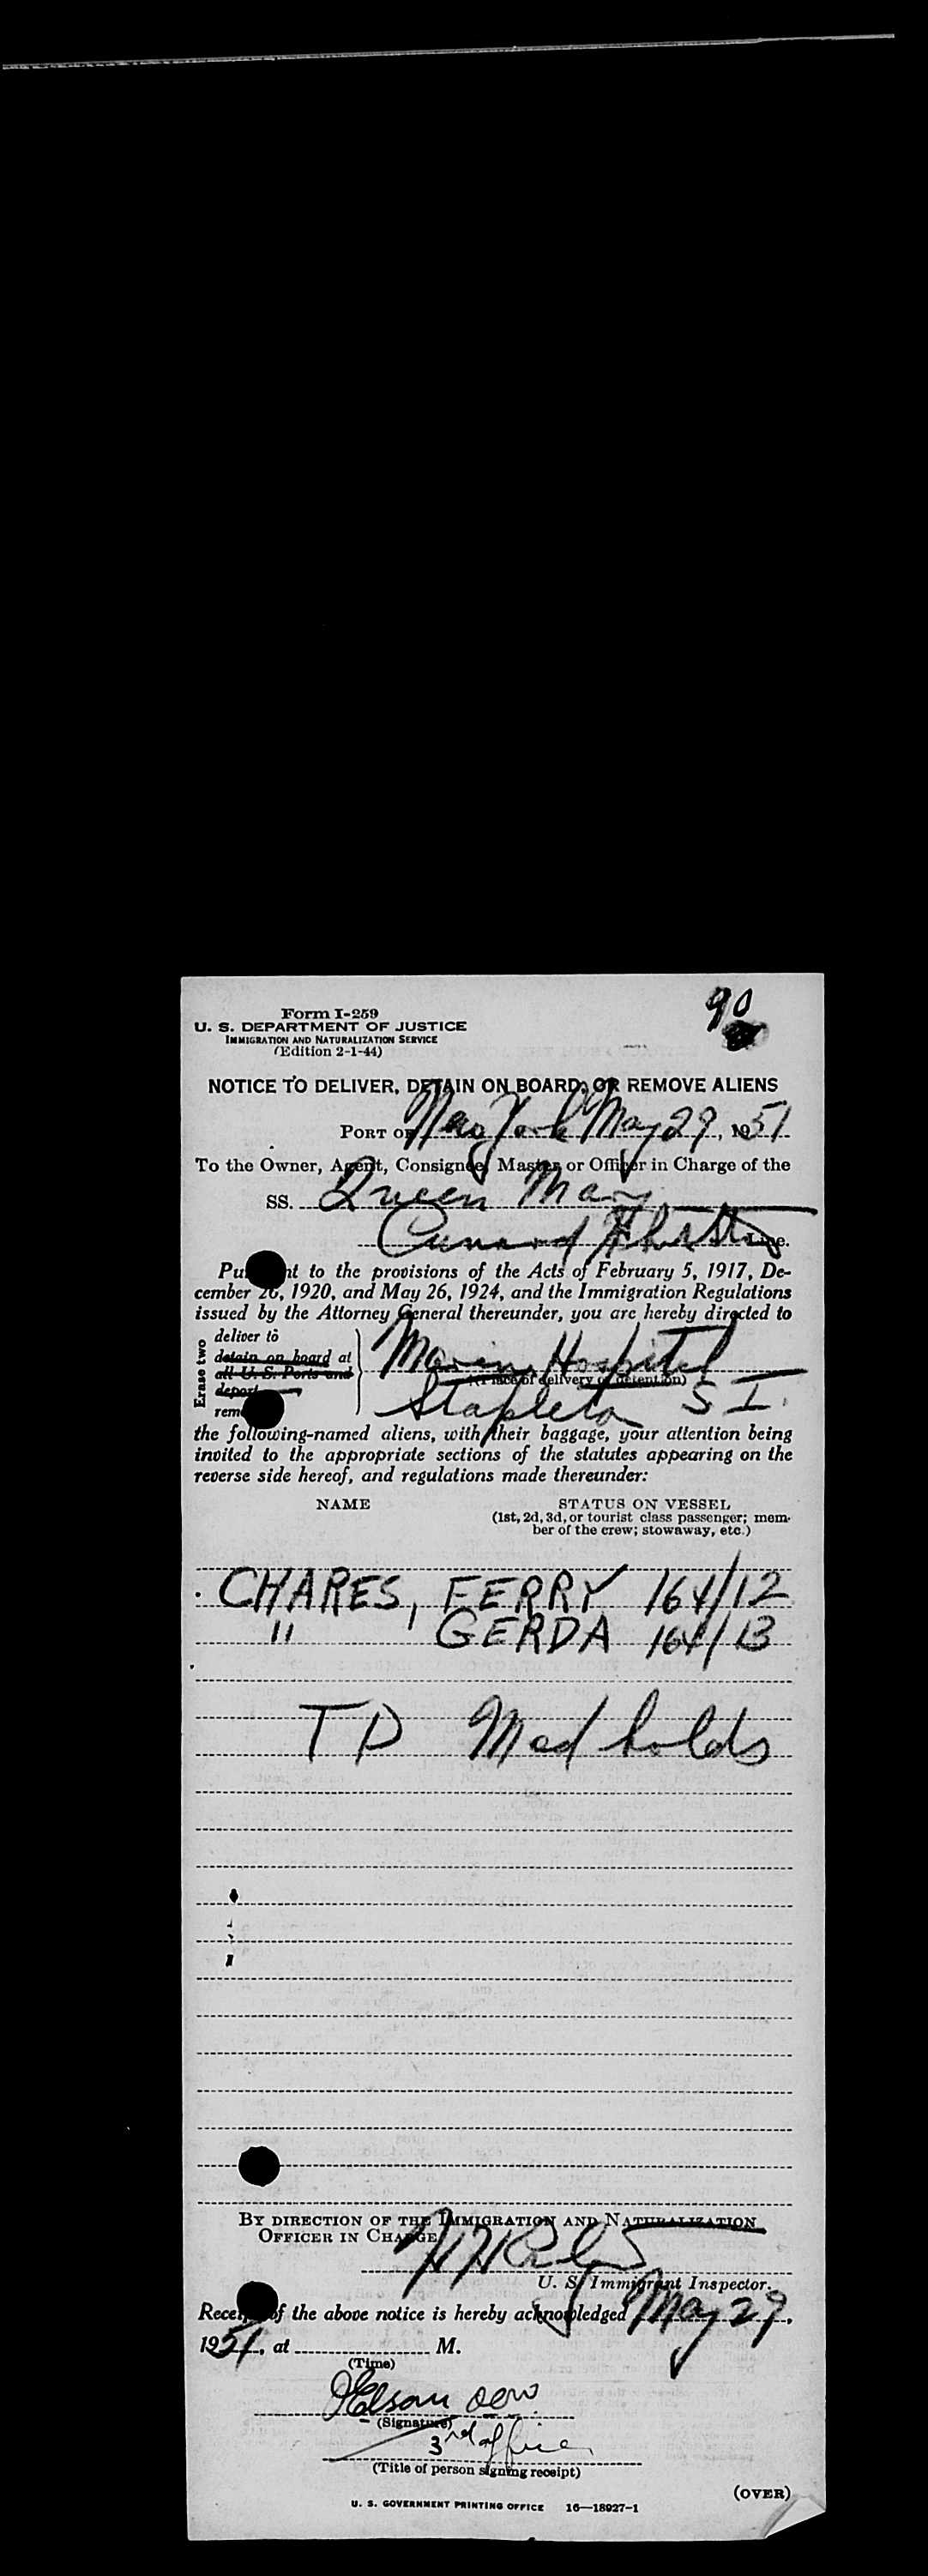 90
Form I-259
U. S. DEPARTMENT OF JUSTICE
IMMIGRATION AND NATURALIZATION SERVICE
(Edition 2-1-44)
NOTICE TO DELIVER, DETAIN ON BOARD, OR REMOVE ALIENS
PORT OF New York May 29, 1951
To the Owner, Agent, Consignee, Master or Officer in Charge of the
SS. Queen Mary
Cunard Line.
to the provisions of the Acts of February 5, 1917, De-
cember 26, 1920, and May 26, 1924, and the Immigration Regulations
issued by the Attorney General thereunder, you are hereby directed to
Erase two
deliver to
detain on board at
all U. S. Ports and
deport
Marine Hospital
(Place of delivery or detention)
Stapleton S I.
the following-named aliens, with their baggage, your attention being
invited to the appropriate sections of the statutes appearing on the
reverse side hereof, and regulations made thereunder:
NAME STATUS ON VESSEL
(1st, 2d, 3d, or tourist class passenger; mem-
ber of the crew; stowaway, etc.)
CHARES, FERRY 164/12
" GERDA 164/13
TD Med holds
BY DIRECTION OF THE IMMIGRATION AND NATURALIZATION
OFFICER IN CHARGE
U. S. Immigrant Inspector.
of the above notice is hereby acknowledged May 29,
1951, at M.
(Time)
(Signature)
3rd officer
(Title of person signing receipt)
(OVER)
U. S. GOVERNMENT PRINTING OFFICE 16—18927-1